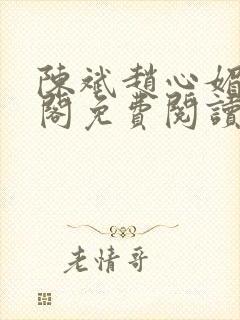 陳斌趙心媚
閣免費閱讀
老情哥